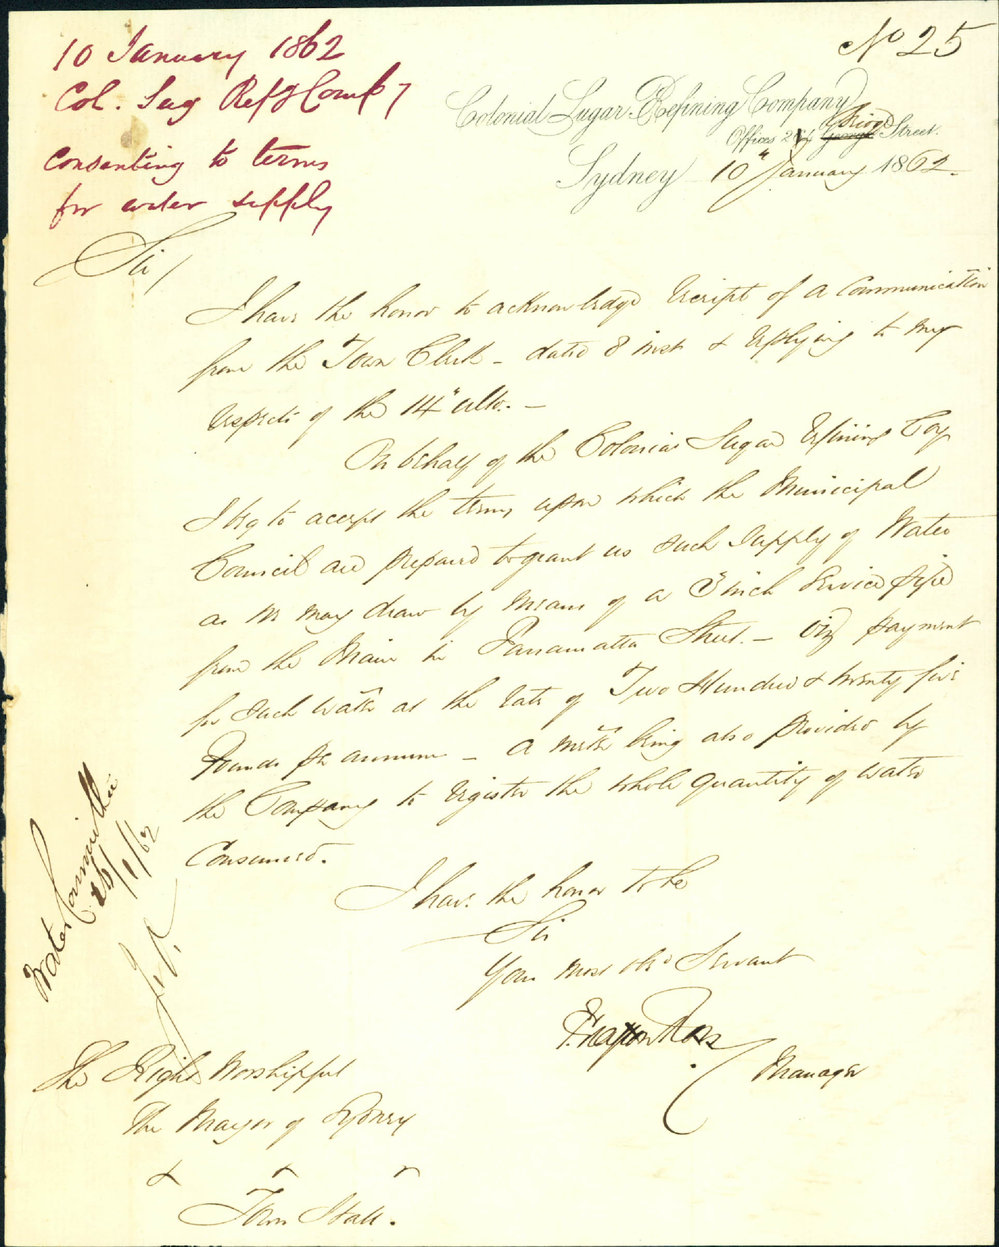 10 January 1862
Col. Sug Refg Compy
consenting to terms
for water supply
No 25
Colonial Sugar Refining Company
Offices 2 Bridge Street.
Sydney 10th January 1862.
Sir/
I have the honor to acknowledge receipt of a communication
from the Town Clerk – dated 8 inst & replying to my
of the 14th ulto. –
On behalf of the Colonial Sugar Refining Coy
I beg to accept the terms upon which the Municipal
Council are prepared to grant us such supply of Water
as we may draw by means of a 3 inch Service pipe
from the Main in Parramatta Street. – Viz payment
for such water at the rate of Two Hundred & twenty five
Pounds per annum – a meter being also provided by
the Company to register the whole quantity of water
Consumed.
I have the honor to be
Sir
Your most obt Servant
Ross
Manager
Water Committee
26/1/62
The Right Worshipful
The Mayor of Sydney
&
Town Hall.